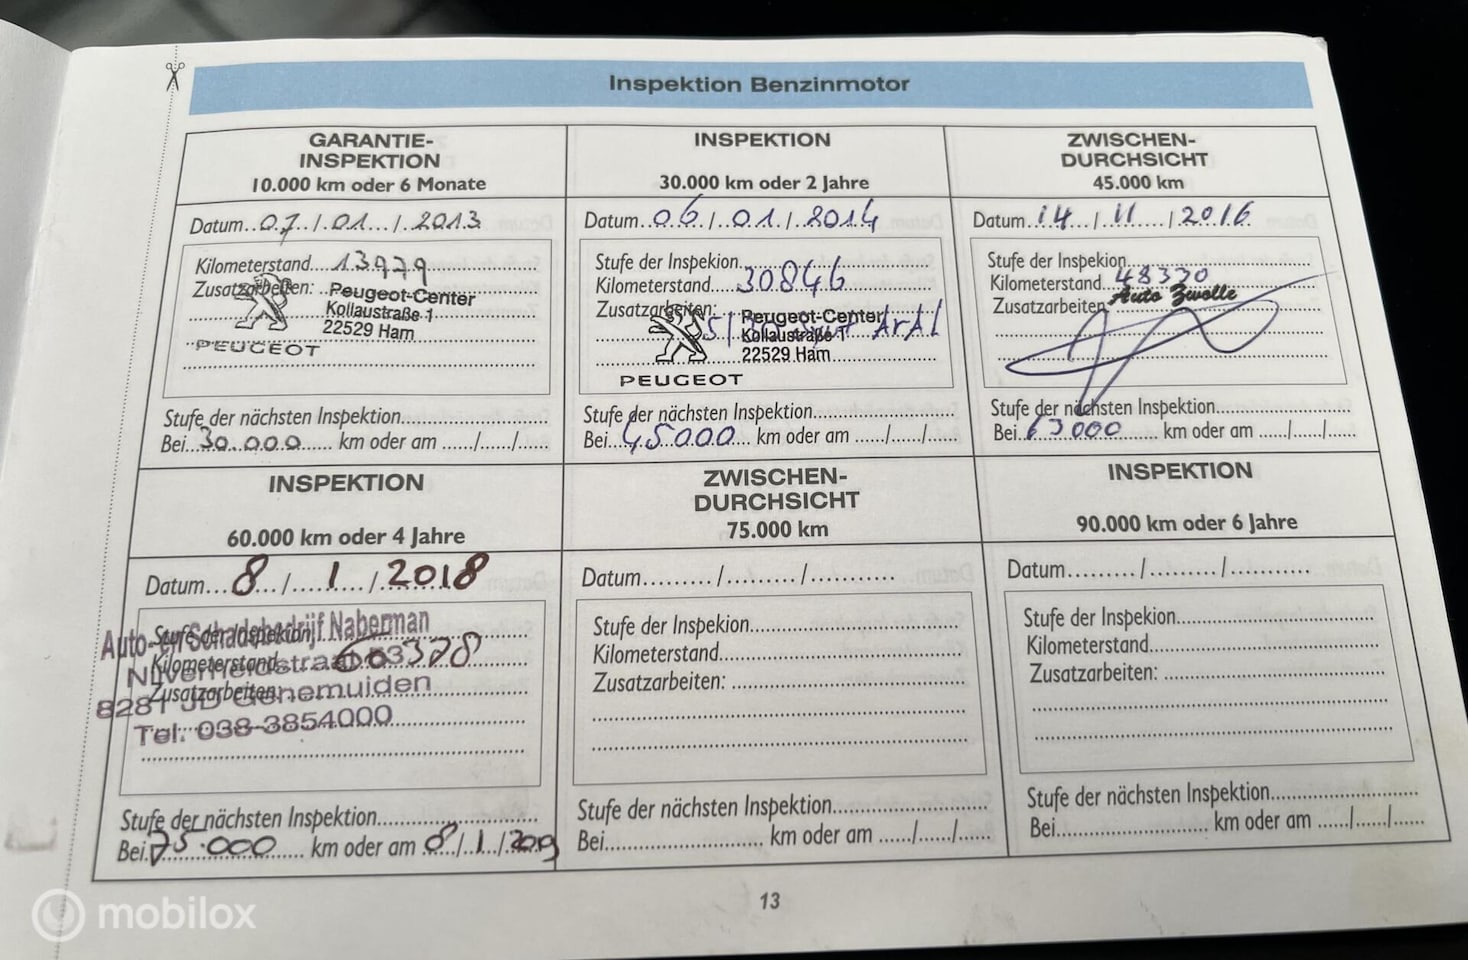 Inspektion Benzinmotor
GARANTIE-
INSPEKTION
10.000 km oder 6 Monate
Datum..07../.01..../..2013
Kilometerstand....13979
Zusatzarbeiten:
Peugeot-Center
Kollaustraße 1
22529 Ham
PEUGEOT
Stufe der nächsten Inspektion
Bei...30.000...... km oder am ....../....../......
INSPEKTION
30.000 km oder 2 Jahre
Datum..06./..01../..2014
Stufe der Inspekion
Kilometerstand..30846
Zusatzarbeiten:
Peugeot-Center
Kollaustraße 1
22529 Ham
PEUGEOT
Stufe der nächsten Inspektion
Bei...45000... km oder am ....../....../......
ZWISCHEN-
DURCHSICHT
45.000 km
Datum..14../..11....../..2016
Stufe der Inspekion
Kilometerstand..48370
Zusatzarbeiten
Auto Zwolle
Stufe der nächsten Inspektion
Bei..63000........ km oder am ....../....../......
INSPEKTION
60.000 km oder 4 Jahre
Datum...8.../.....1..../..2018
Stufe der Inspekion
Auto- en Schadebedrijf Naberman
Kilometerstand 60378
Zusatzarbeiten:
8281 JD Genemuiden
Tel. 038-3854000
Stufe der nächsten Inspektion
Bei 75.000...... km oder am 8./..1../..209
ZWISCHEN-
DURCHSICHT
75.000 km
Datum........./........./..........
Stufe der Inspekion
Kilometerstand
Zusatzarbeiten:
Stufe der nächsten Inspektion
Bei............................ km oder am ....../....../......
INSPEKTION
90.000 km oder 6 Jahre
Datum........./........./..........
Stufe der Inspekion
Kilometerstand
Zusatzarbeiten:
Stufe der nächsten Inspektion
Bei............................ km oder am ....../....../......
13
mobilox